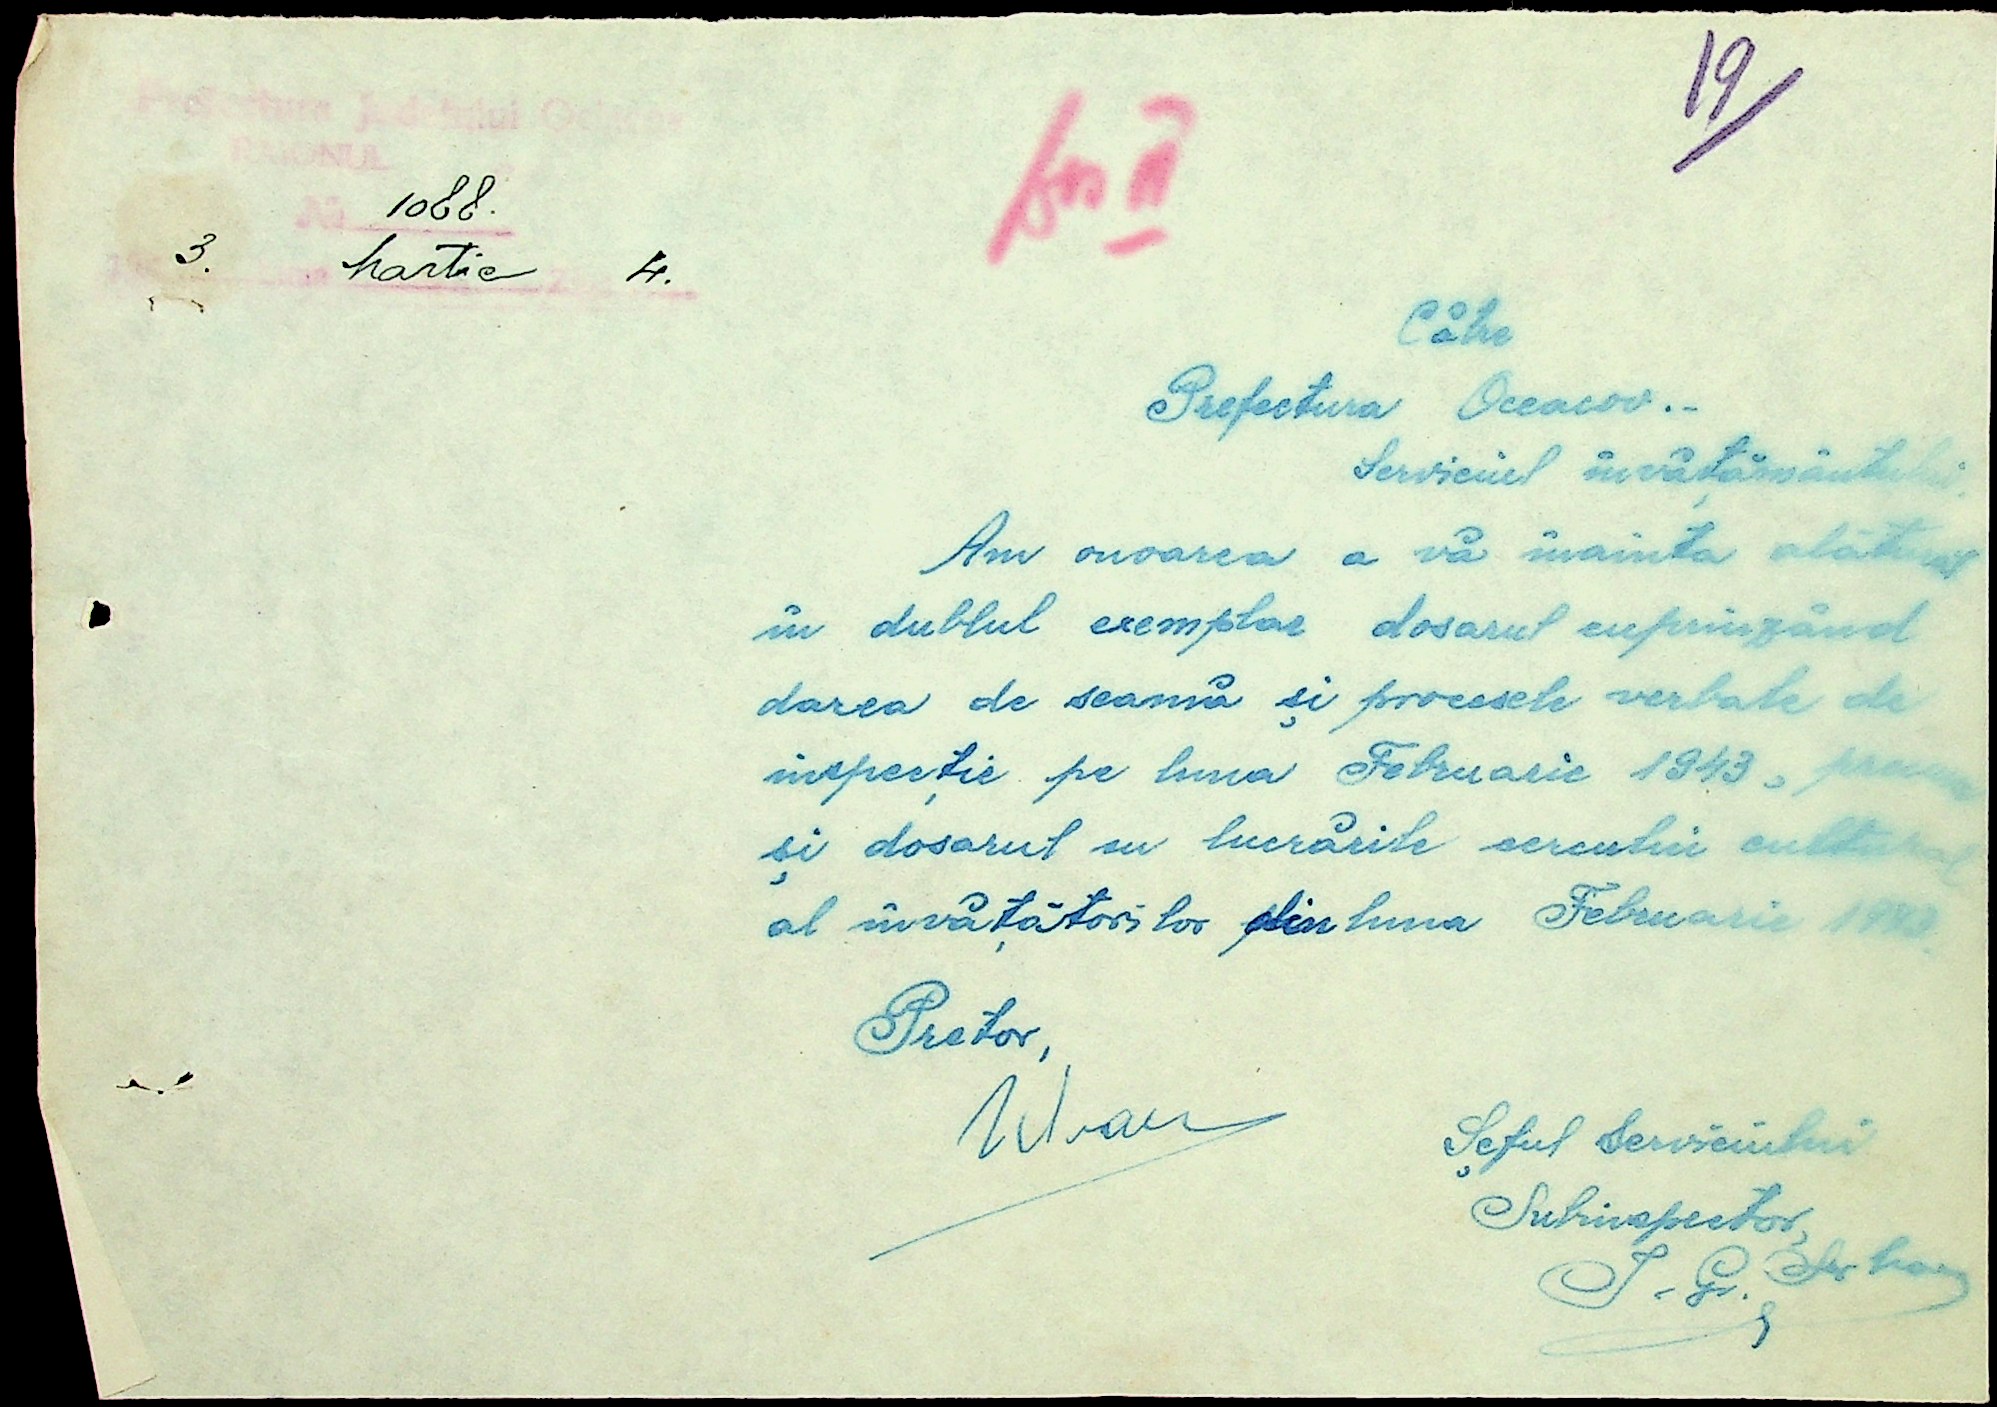 19
Prefectura Județului Oceacov
RAIONUL
Nr. 1088.
3. Martie 4.
Către
Prefectura Oceacov.-
Serviciul învățământului.
Am onoarea a vă înainta alăturat
în dublul exemplar dosarul cuprinzând
darea de seamă și procesele verbale de
inspecție pe luna Februarie 1943, precum
și dosarul cu lucrările cercului cultural
al învățătorilor din luna Februarie 1943.
Pretor,
Șeful Serviciului
Subinspector,
I. Gr. Șerban